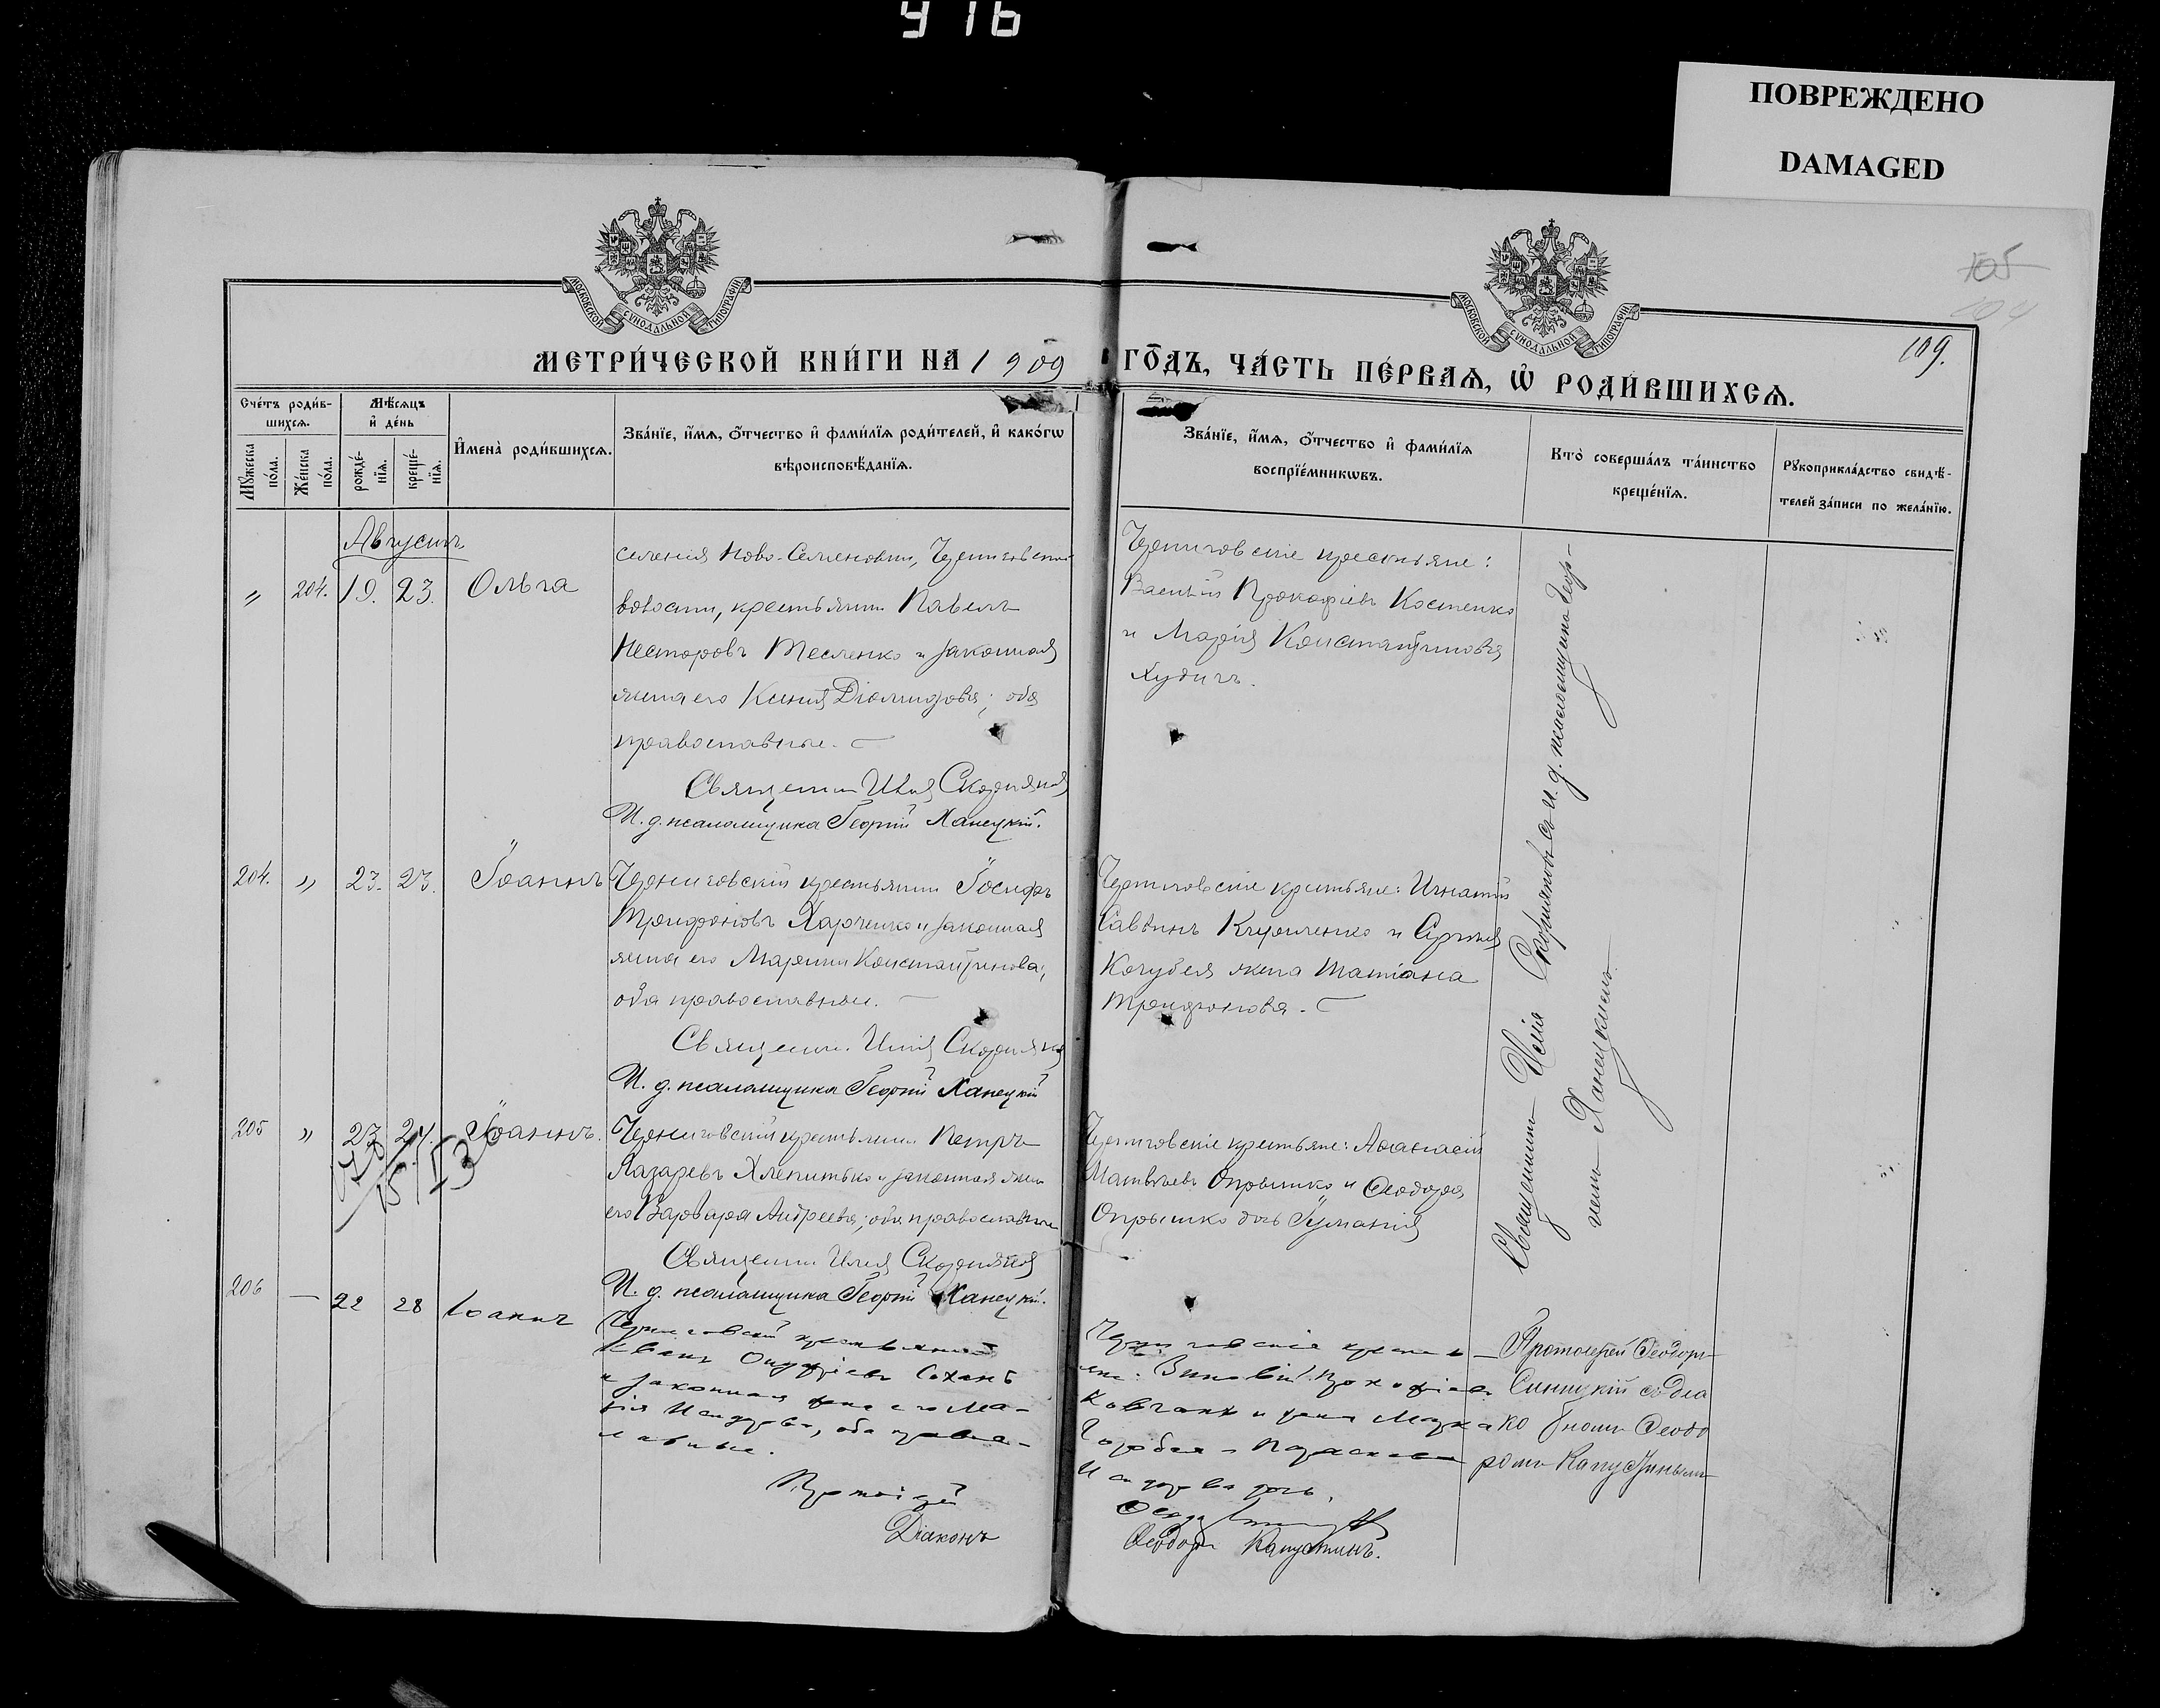 916
ПОВРЕЖДЕНО
DAMAGED
МОСКОВСКОЙ СѴНОДАЛЬНОЙ ТИПОГРАФІИ
МОСКОВСКОЙ СѴНОДАЛЬНОЙ ТИПОГРАФІИ
105
104
109.
МЕТРИ́ЧЕСКОЙ КНИ́ГИ НА 1909 ГО́ДЪ, ЧА́СТЬ ПЕ́РВАѦ, Ѡ РОДИ́ВШИХСѦ.
Сче́тъ роди́в-
шихсѧ.
Мꙋ́жеска по́ла.
Же́нска по́ла.
Мѣ́сѧцъ
и҆ де́нь
рожде́-
нїѧ.
креще́-
нїѧ.
И҆мена̀ роди́вшихсѧ.
Зва́нїе, и҆́мѧ, ѻ҆́тчество и҆ фами́лїѧ роди́телей, и҆ како́гѡ
вѣроисповѣ́данїѧ.
Зва́нїе, и҆́мѧ, ѻ҆́тчество и҆ фами́лїѧ
воспрїе́мникѡвъ.
Кто̀ соверша́лъ та́инство
креще́нїѧ.
Рꙋкоприкла́дство свидѣ́-
телей за́писи по жела́нїю.
Августъ
" 204. 19. 23. Ольга
селенія Ново-Семеновки, Черниговской
волости, крестьянинъ Павелъ
Несторовъ Тесленко и законная
жена его Ксенія Діомидова; оба
православные.
Священникъ Илія Скорняковъ
И. д. псаломщика Георгій Ханецкій.
Черниговскіе крестьяне:
Василій Прокофіевъ Костенко
и Марія Константинова
Худичъ.
204. " 23. 23. Іоаннъ
Черниговскій крестьянинъ Іосифъ
Трифоновъ Харченко и законная
жена его Марина Константинова;
оба православные.
Священник. Илія Скорняковъ
И. д. псаломщика Георгій Ханецкій
Черниговскіе крестьяне: Игнатій
Саввинъ и Сергія
Кочубея жена Татіана
Трифонова.
205 " 23 24. Іоаннъ.
Черниговскій крестьянинъ Петръ
Лазаревъ Хлепитько и законная жена
его Варвара Андреева; оба православные
Священникъ Илія Скорняковъ
И. д. псаломщика Георгій Ханецкій.
Черниговскіе крестьяне: Аѳанасій
Матвѣевъ Опрышко и Ѳеодора
Опрышко дочь Іуліанія
Священникъ Илія Скорняковъ съ и. д. псаломщика Геор-
гіемъ Ханецкимъ.
206 — 22 28 Іоаннъ
Черниговскій крестьянинъ
Иванъ Онуфріевъ Сохань
и законная жена его Ма-
рія Исидорова, оба право-
славные.
Протоіерей
Діаконъ
Черниговскіе кресть-
яне: Зиновій Прокофіевъ
Ковганъ и жена Марка
Горобея Параскева
Исидорова дочь.
Ѳеодоръ Капустинъ.
Протоіерей Ѳеодоръ
Синицкій съ діа
кономъ Ѳеодо
ромъ Капустинымъ